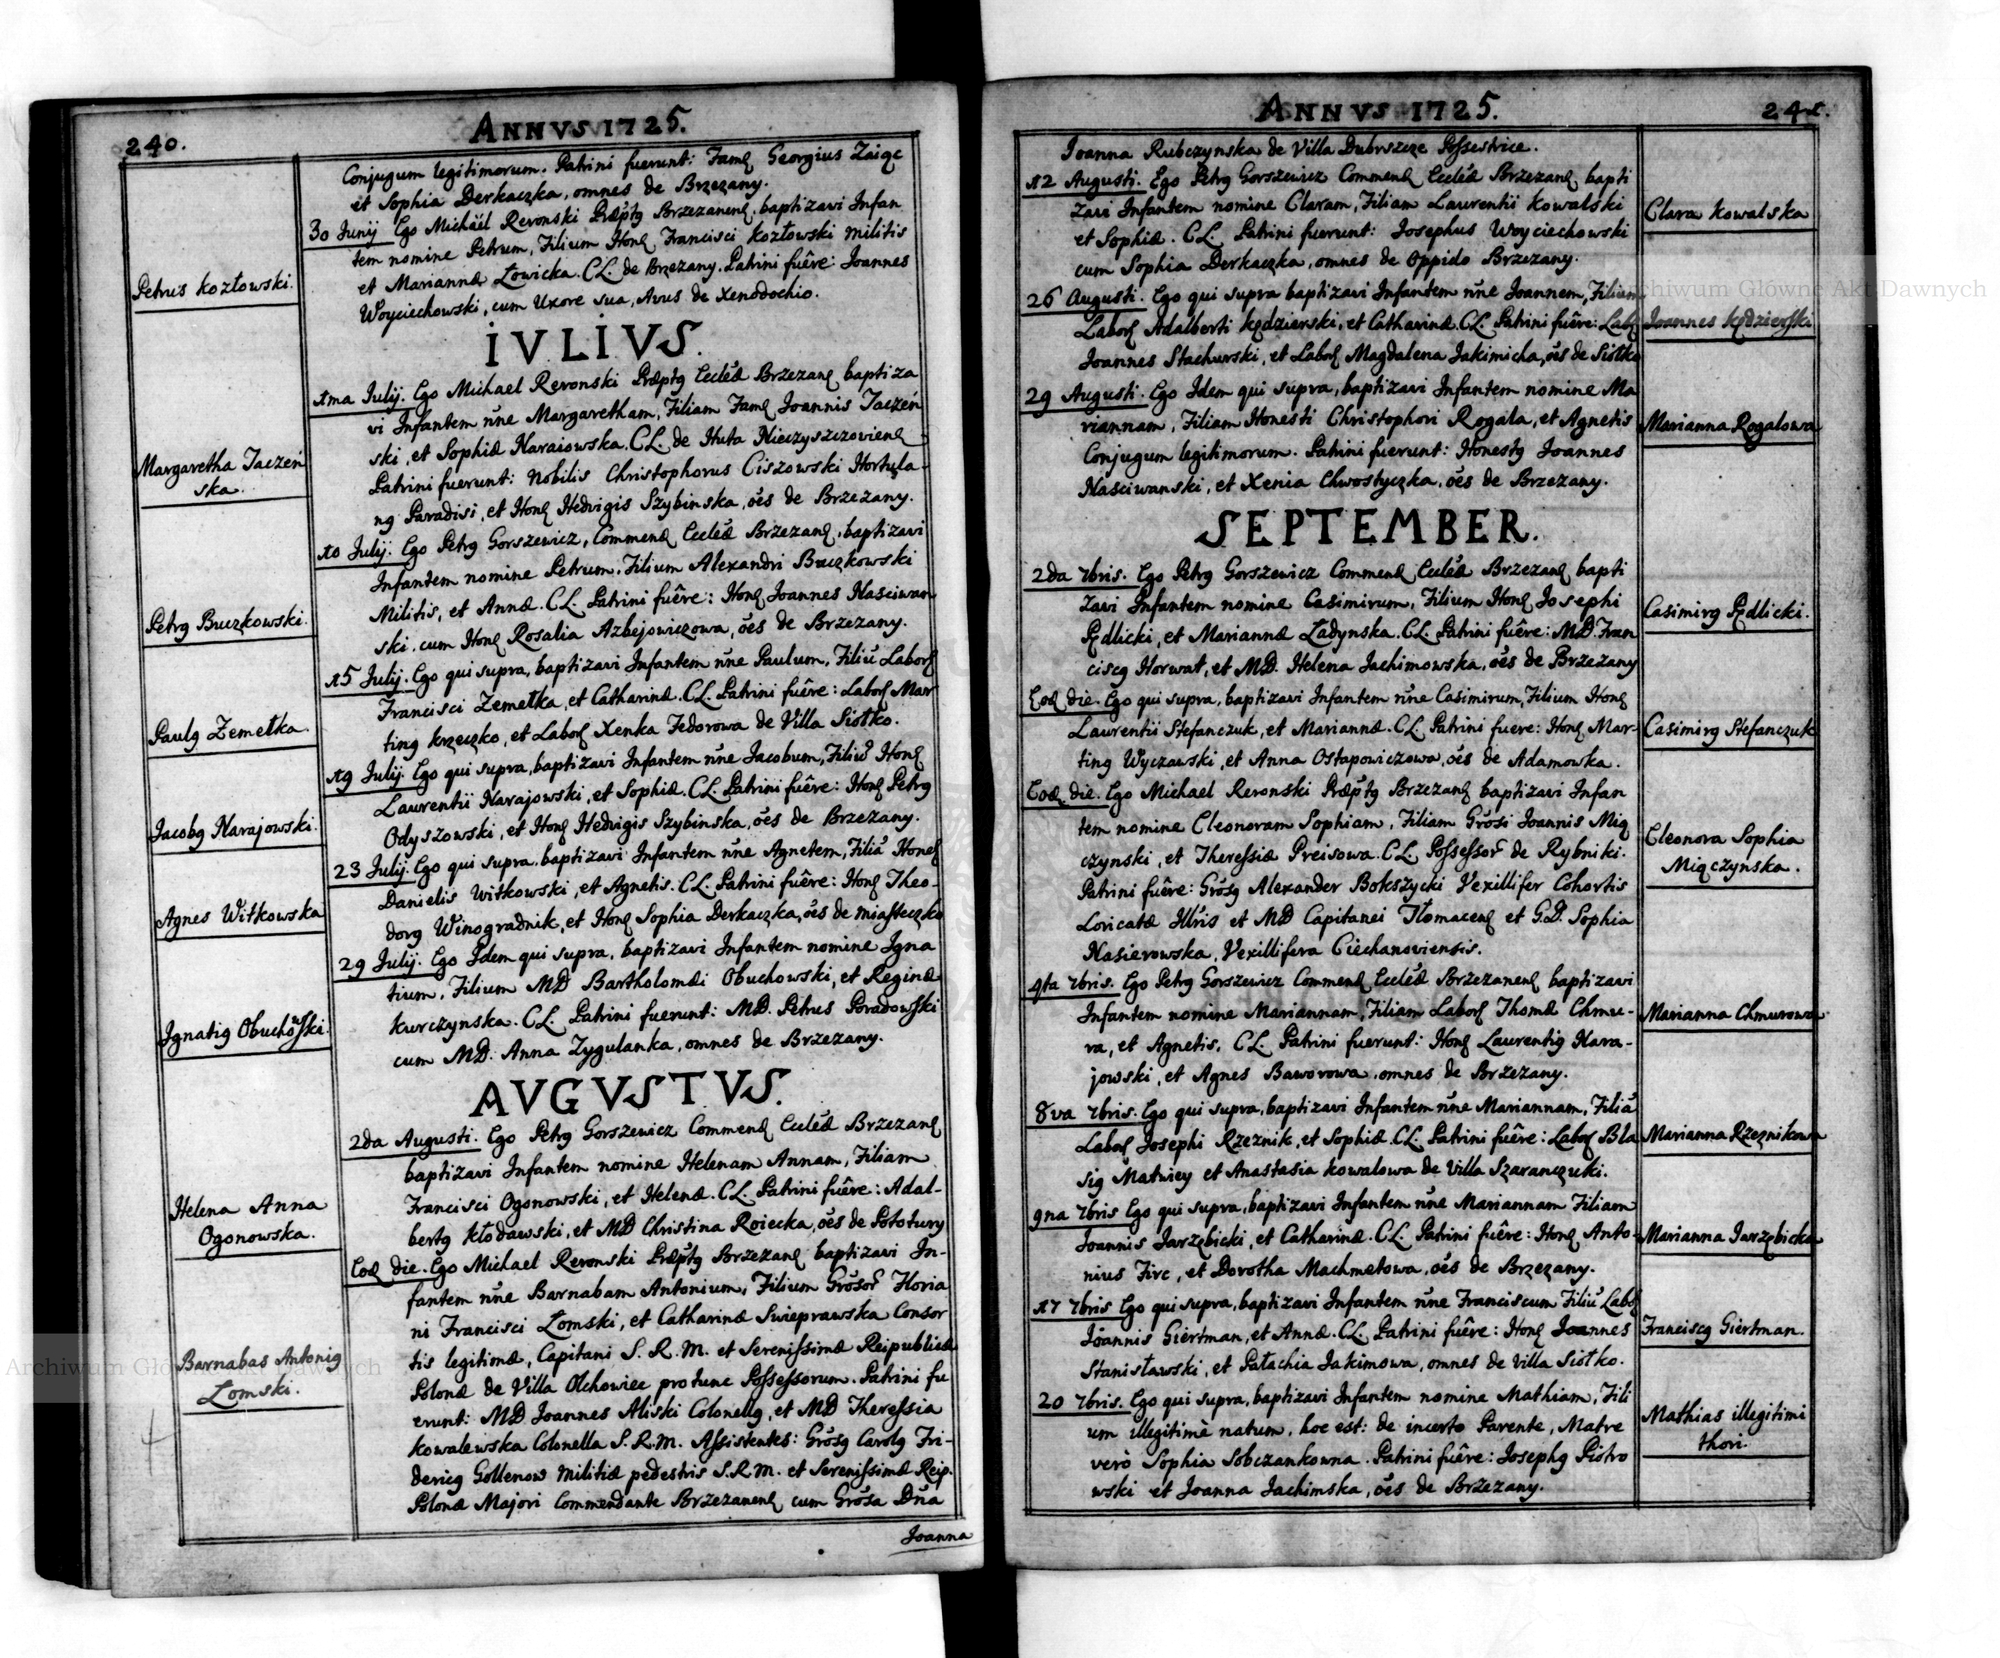 240.
ANNVS 1725.
Conjugum legitimorum. Patrini fuerunt: Famꝰ Georgius Zaiąc
et Sophia Derkaczka, omnes de Brzezany.
30 Junij Ego Michaël Revonski Præpꝰtꝰ Brzezanenꝰ, baptizavi Infan
tem nomine Petrum, Filium Honꝰ Francisci Kozłowski Militis
et Mariannæ Łowicka. CL. de Brzezany. Patrini fuêre: Joannes
Woyciechowski, cum Uxore sua, Avus de Xenodochio.
Petrus Kozłowski.
IVLIVS.
1ma Julij. Ego Michael Revonski Præptꝰ Eccłæ Brzezanꝰ baptiza
vi Infantem nñe Margaretham, Filiam Famꝰ Joannis Jaczeń
ski, et Sophiæ Naraiowska. CL. de Huta Nieczyszczovienꝰ
Patrini fuerunt: Nobilis Christophorus Ciszowski Hortula-
nꝰ Paradisi, et Honꝰ Hedvigis Szybinska, oẽs de Brzezany.
Margaretha Jaczeń
ska.
10 Julij. Ego Petrꝰ Gorszewicz, Commendꝰ Eccłæ Brzezanꝰ, baptizavi
Infantem nomine Petrum, Filium Alexandri Buczkowski
Militis, et Annæ. CL. Patrini fuêre: Honꝰ Joannes Naściwan
ski, cum Honꝰ Rosalia Azbejowiczowa, oẽs de Brzezany.
Petrꝰ Buczkowski.
15 Julij. Ego qui supra, baptizavi Infantem nñe Paulum, Filiũ Laborꝰ
Francisci Zemełka, et Catharinæ. CL. Patrini fuêre: Laborꝰ Mar
tinꝰ Krzeczko, et Laborꝰ Xenka Fedorowa de Villa Siołko.
Paulꝰ Zemełka.
19 Julij. Ego qui supra, baptizavi Infantem nñe Jacobum, Filiũ Honꝰ
Laurentii Narajowski, et Sophiæ. CL. Patrini fuêre: Honꝰ Petrꝰ
Odyszowski, et Honꝰ Hedvigis Szybinska, oẽs de Brzezany.
Jacobꝰ Narajowski.
23 Julij. Ego qui supra, baptizavi Infantem nñe Agnetem, Filiã Honeꝰ
Danielis Witkowski, et Agnetis. CL. Patrini fuêre: Honꝰ Theo-
dorꝰ Winogradnik, et Honꝰ Sophia Derkaczka, oẽs de Miasteczko
Agnes Witkowska
29 Julij. Ego Idem qui supra, baptizavi Infantem nomine Igna
tium, Filium MD Bartholomæi Obuchowski, et Reginæ
Kurczynska. CL. Patrini fuerunt: MD. Petrus Poradowski
cum MD. Anna Zygulanka, omnes de Brzezany.
Ignatiꝰ Obuchowski.
AVGVSTVS.
2da Augusti. Ego Petrꝰ Gorszewicz Commendꝰ Eccłæ Brzezanꝰ
baptizavi Infantem nomine Helenam Annam, Filiam
Francisci Ogonowski, et Helenæ. CL. Patrini fuêre: Adal-
bertꝰ Kłodawski, et MD Christina Roiecka, oẽs de Potutury
Helena Anna
Ogonowska.
Eodꝰ die. Ego Michael Revonski Præptꝰ Brzezanꝰ baptizavi In-
fantem nñe Barnabam Antonium, Filium Grõsorꝰ Floria
ni Francisci Łomski, et Catharinæ Swieprawska Consor
tis legitimæ, Capitani S. R. M. et Serenissimæ Reipublicæ
Polonæ de Villa Olchowiec protunc Possessorum. Patrini fu
erunt: MD Joannes Aliski Colonellꝰ, et MD Theressia
Kowalewska Colonella S. R. M. Assistentes: Grõsꝰ Carolꝰ Fri-
dericꝰ Gollenow Militiæ pedestris S.R.M. et Serenissimæ Reip.
Polonæ Majori Commendante Brzezanenꝰ cum Grõsa Dña
Joanna
Barnabas Antoniꝰ
Łomski.
241.
ANNVS 1725.
Joanna Rubczynska de Villa Dubrszcze Possestrice.
12 Augusti. Ego Petrꝰ Gorszewicz Commendꝰ Eccłæ Brzezanꝰ bapti
zavi Infantem nomine Claram, Filiam Laurentii Kowalski
et Sophiæ. CL. Patrini fuerunt: Josephus Woyciechowski
cum Sophia Derkaczka, omnes de Oppido Brzezany.
Clara Kowalska
26 Augusti. Ego qui supra baptizavi Infantem nñe Joannem, Filium
Laborꝰ Adalberti Kędzierski, et Catharinæ. CL. Patrini fuêre: Labꝰ
Joannes Stachurski, et Laborꝰ Magdalena Jakimicha, oẽs de Siołko
Joannes Kędzierski
29 Augusti. Ego Idem qui supra, baptizavi Infantem nomine Ma
riannam, Filiam Honesti Christophori Rogala, et Agnetis
Conjugum legitimorum. Patrini fuerunt: Honestꝰ Joannes
Naściwanski, et Xenia Chwostyczka, oẽs de Brzezany.
Marianna Rogalowa
SEPTEMBER.
2da 7bris. Ego Petrꝰ Gorszewicz Commendꝰ Eccłæ Brzezanꝰ bapti
zavi Infantem nomine Casimirum, Filium Honꝰ Josephi
Pędlicki, et Mariannæ Ładynska. CL. Patrini fuêre: MD. Fran
ciscꝰ Horwat, et MD. Helena Jachimowska, oẽs de Brzezany
Casimirꝰ Pędlicki.
Eodꝰ die. Ego qui supra, baptizavi Infantem nñe Casimirum, Filium Honꝰ
Laurentii Stefanczuk, et Mariannæ. CL. Patrini fuere: Honꝰ Mar-
tinꝰ Wyczawski, et Anna Ostapowiczowa, oẽs de Adamowka.
Casimirꝰ Stefanczuk
Eodꝰ die. Ego Michael Revonski Præptꝰ Brzezanꝰ baptizavi Infan
tem nomine Eleonoram Sophiam, Filiam Grõsi Joannis Mią
czynski, et Theressiæ Preisowa. CL. Possessorꝰ de Rybniki.
Patrini fuêre: Grõsꝰ Alexander Bokszycki Vexillifer Cohortis
Loricatæ Illris et MD Capitanei Tłomacenꝰ et G.D. Sophia
Nasierowska, Vexillifera Ciechanoviensis.
Eleonora Sophia
Miączynska.
4ta 7bris. Ego Petrꝰ Gorszewicz Commendꝰ Eccłæ Brzezanenꝰ baptizavi
Infantem nomine Mariannam, Filiam Laborꝰ Thomæ Chmu-
ra, et Agnetis. CL. Patrini fuerunt: Honꝰ Laurentiꝰ Nara-
jowski, et Agnes Baworowa, omnes de Brzezany.
Marianna Chmurowa
8va 7bris. Ego qui supra, baptizavi Infantem nñe Mariannam, Filiã
Laborꝰ Josephi Rzeznik, et Sophiæ. CL. Patrini fuêre: Laborꝰ Bla
siꝰ Matwiey et Anastasia Kowalowa de Villa Szaranczuki.
Marianna Rzeznikowa
9na 7bris Ego qui supra, baptizavi Infantem nñe Mariannam Filiam
Joannis Jarzębicki, et Catharinæ. CL. Patrini fuêre: Honꝰ Anto-
nius Firc, et Dorotha Machmetowa, oẽs de Brzezany.
Marianna Jarzębicka
17 7bris Ego qui supra, baptizavi Infantem nñe Franciscum Filiũ Labꝰ
Joannis Giertman, et Annæ. CL. Patrini fuêre: Honꝰ Joannes
Stanisławski, et Pałachia Jakimowa, omnes de Villa Siołko.
Franciscꝰ Giertman.
20 7bris. Ego qui supra, baptizavi Infantem nomine Mathiam, Fili
um illegitimè natum, hoc est: de incerto Parente, Matre
verò Sophia Sobczankowna. Patrini fuêre: Josephꝰ Piotro
wski et Joanna Jachimska, oẽs de Brzezany.
Mathias illegitimi
thori.
Archiwum Główne Akt Dawnych
Archiwum Główne Akt Dawnych